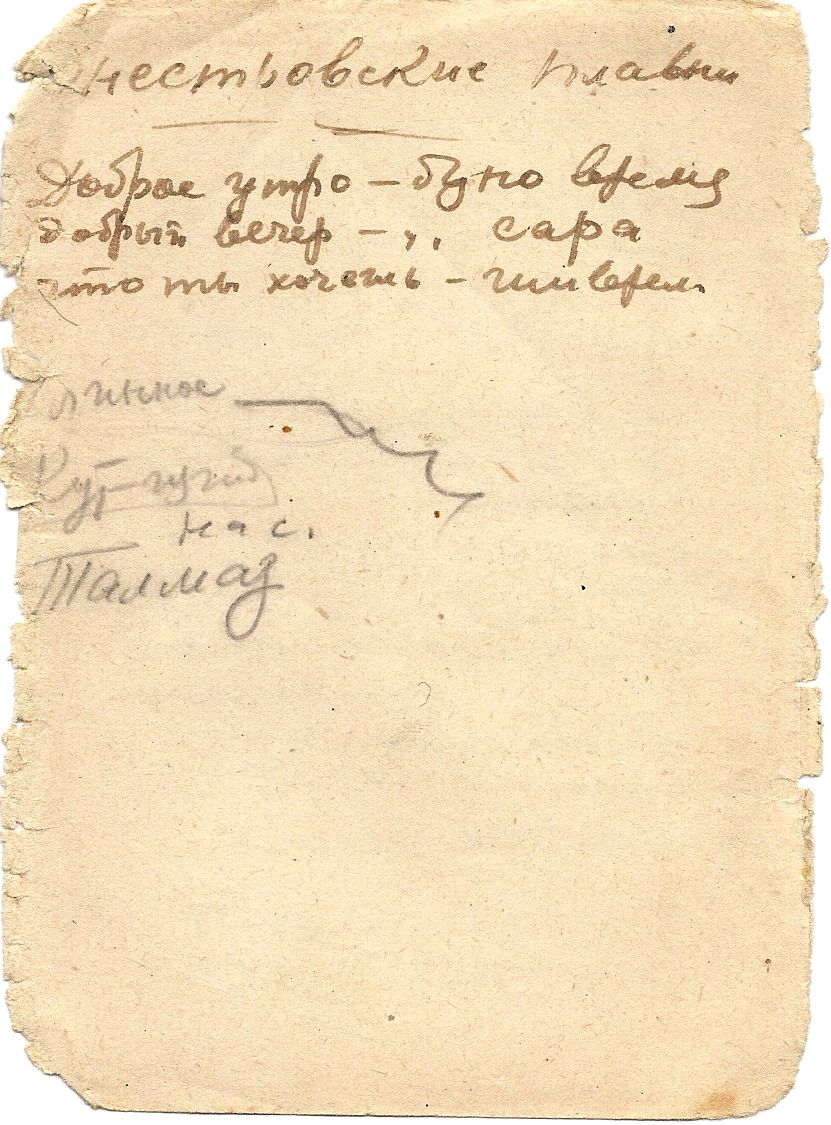 Днестровские плавни
Доброе утро – буно время
добрый вечер – ,, сара
что ты хочешь – ши врем
Глинное
нас.
Талмаз